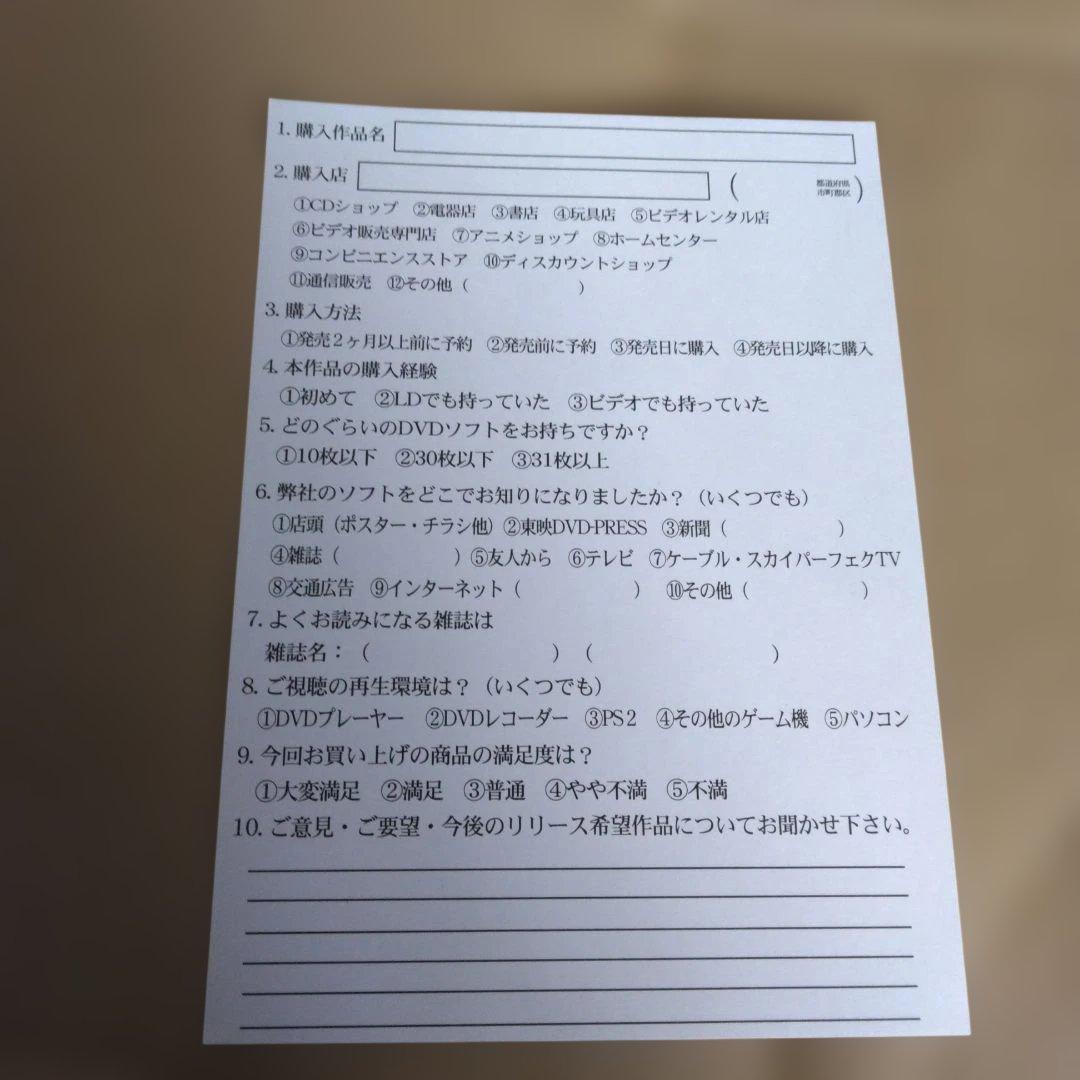 1. 購入作品名
2. 購入店 ( 都道府県 市町郡区 )
①CDショップ ②電器店 ③書店 ④玩具店 ⑤ビデオレンタル店
⑥ビデオ販売専門店 ⑦アニメショップ ⑧ホームセンター
⑨コンビニエンスストア ⑩ディスカウントショップ
⑪通信販売 ⑫その他（ ）
3. 購入方法
①発売２ヶ月以上前に予約 ②発売前に予約 ③発売日に購入 ④発売日以降に購入
4. 本作品の購入経験
①初めて ②LDでも持っていた ③ビデオでも持っていた
5. どのぐらいのDVDソフトをお持ちですか？
①10枚以下 ②30枚以下 ③31枚以上
6. 弊社のソフトをどこでお知りになりましたか？（いくつでも）
①店頭（ポスター・チラシ他）②東映DVD-PRESS ③新聞（ ）
④雑誌（ ）⑤友人から ⑥テレビ ⑦ケーブル・スカイパーフェクTV
⑧交通広告 ⑨インターネット（ ） ⑩その他（ ）
7. よくお読みになる雑誌は
雑誌名：（ ）（ ）
8. ご視聴の再生環境は？（いくつでも）
①DVDプレーヤー ②DVDレコーダー ③PS２ ④その他のゲーム機 ⑤パソコン
9. 今回お買い上げの商品の満足度は？
①大変満足 ②満足 ③普通 ④やや不満 ⑤不満
10. ご意見・ご要望・今後のリリース希望作品についてお聞かせ下さい。